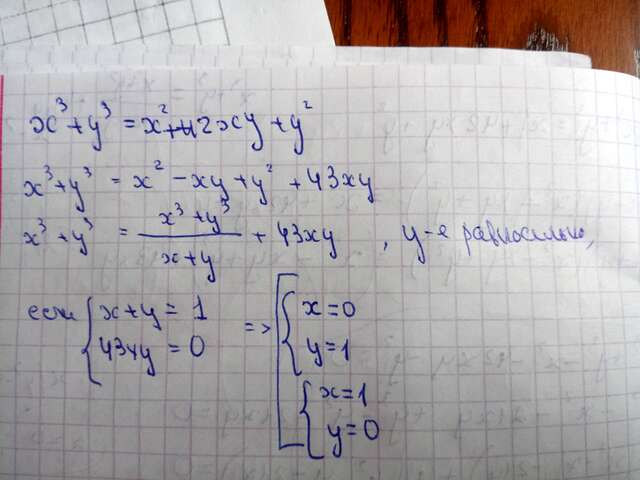 x³ + y³ = x² + 42xy + y²
x³ + y³ = x² - xy + y² + 43xy
x³ + y³ = (x³ + y³)/(x + y) + 43xy , у-е равносильно,
если { x + y = 1 => [ { x = 0
43xy = 0 y = 1
{ x = 1
y = 0